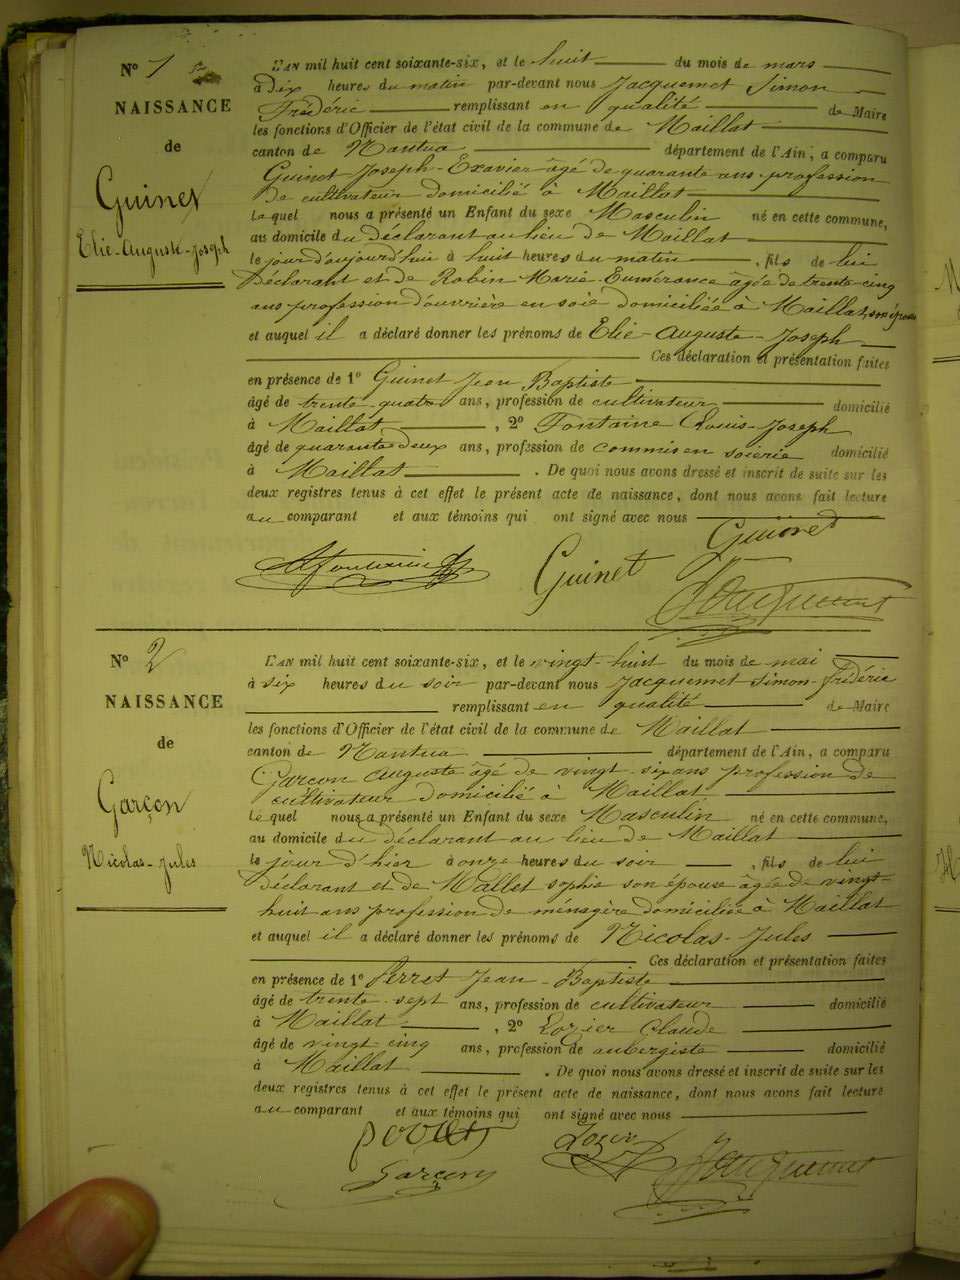 N° 1
NAISSANCE
de
Guinet
Elie-Auguste-Joseph
L'AN mil huit cent soixante-six, et le huit du mois de mars
à dix heures du matin par-devant nous Jacquemet Simon
Frédéric remplissant en qualité de Maire
les fonctions d'Officier de l'état civil de la commune de Maillat
canton de Nantua département de l'Ain, a comparu
Guinet Joseph-Exavier âgé de quarante ans profession
de cultivateur domicilié à Maillat
Lequel nous a présenté un Enfant du sexe Masculin né en cette commune,
au domicile du déclarant au lieu de Maillat
le jour d'aujourd'hui à huit heures du matin, fils de lui
Déclarant et de Robin Marie Eumérance âgée de trente-cinq
ans profession d'ouvrière en soie domiciliée à Maillat, son épouse
et auquel il a déclaré donner les prénoms de Elie-Auguste-Joseph
Ces déclaration et présentation faites
en présence de 1° Guinet Jean Baptiste
âgé de trente-quatre ans, profession de cultivateur domicilié
à Maillat, 2° Fontaine Louis-Joseph
âgé de quarante deux ans, profession de commis en soierie domicilié
à Maillat. De quoi nous avons dressé et inscrit de suite sur les
deux registres tenus à cet effet le présent acte de naissance, dont nous avons fait lecture
au comparant et aux témoins qui ont signé avec nous
Guinet
Afontaine Guinet
Jacquemet
N° 2
NAISSANCE
de
Garçon
Nicolas-Jules
L'AN mil huit cent soixante-six, et le vingt-huit du mois de mai
à six heures du soir par-devant nous Jacquemet Simon-Frédéric
remplissant en qualité de Maire
les fonctions d'Officier de l'état civil de la commune de Maillat
canton de Nantua département de l'Ain, a comparu
Garçon Auguste âgé de vingt-six ans profession de
cultivateur domicilié à Maillat
Lequel nous a présenté un Enfant du sexe Masculin né en cette commune,
au domicile du déclarant au lieu de Maillat
le jour d'hier à onze heures du soir, fils de lui
déclarant et de Mallet sophie son épouse âgée de vingt-
huit ans profession de ménagère domiciliée à Maillat
et auquel il a déclaré donner les prénoms de Nicolas-Jules
Ces déclaration et présentation faites
en présence de 1° Perret Jean-Baptiste
âgé de trente-sept ans, profession de cultivateur domicilié
à Maillat, 2° Lozier Claude
âgé de vingt cinq ans, profession de aubergiste domicilié
à Maillat. De quoi nous avons dressé et inscrit de suite sur les
deux registres tenus à cet effet le présent acte de naissance, dont nous avons fait lecture
au comparant et aux témoins qui ont signé avec nous
Lozier
Garçon Jacquemet